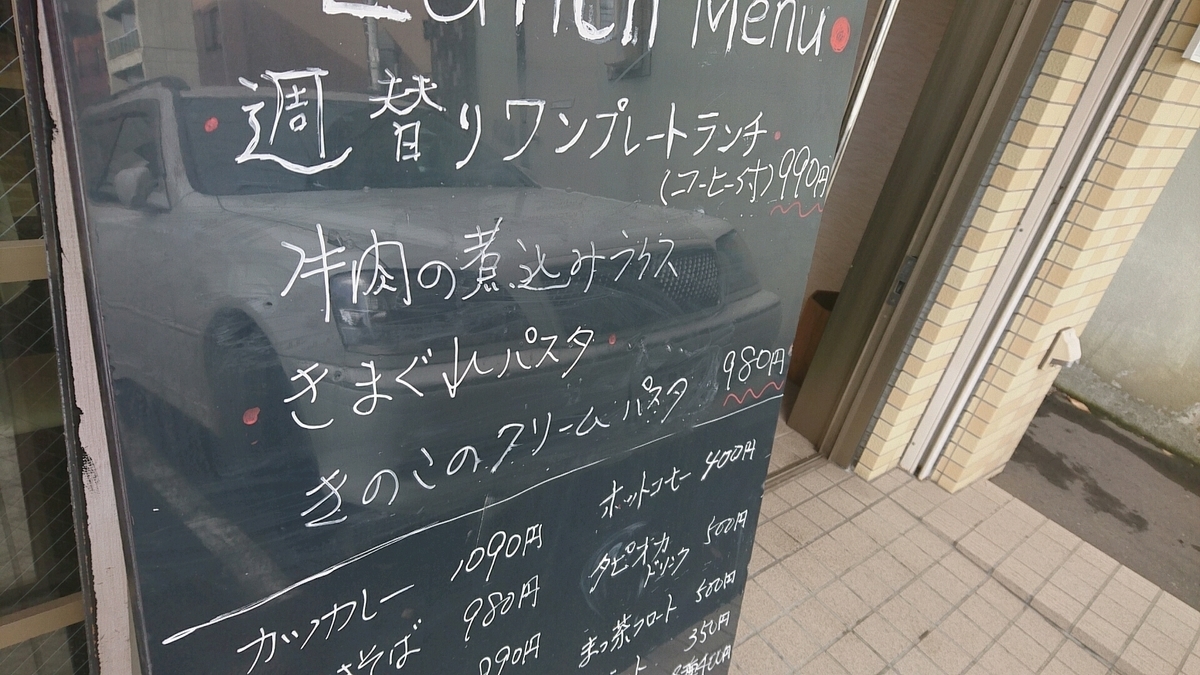 Lunch Menu
週替りワンプレートランチ
(コーヒー付) 990円
牛肉の煮込みライス
きまぐれパスタ
きのこのクリームパスタ 980円
カツカレー 1090円
そば 980円
090円
ホットコーヒー 400円
タピオカ
ドリンク 500円
まっ茶フロート 500円
350円